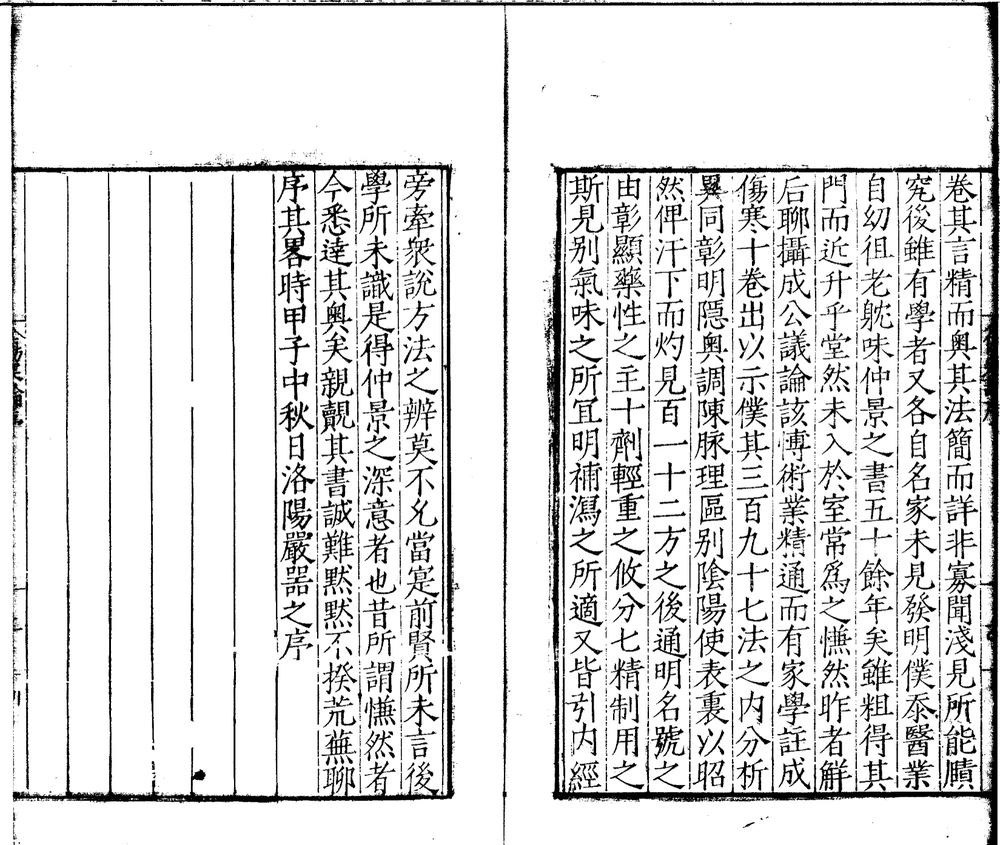 卷其言精而奧其法簡而詳非寡聞淺見所能賾
究後雖有學者又各自名家未見發明僕忝醫業
自幼徂老躭味仲景之書五十餘年矣雖粗得其
門而近升乎堂然未入於室常爲之慊然昨者觧
后聊攝成公議論該博術業精通而有家學註成
傷寒十卷出以示僕其三百九十七法之内分析
異同彰明隱奧調陳脉理區别陰陽使表裏以昭
然俾汗下而灼見百一十二方之後通明名號之
由彰顯藥性之主十劑輕重之攸分七精制用之
斯見别氣味之所冝明補瀉之所適又皆引内經
旁牽衆說方法之辨莫不允當寔前賢所未言後
學所未識是得仲景之深意者也昔所謂慊然者
今悉達其奧矣親覿其書誠難黙黙不揆荒蕪聊
序其畧時甲子中秋日洛陽嚴器之序